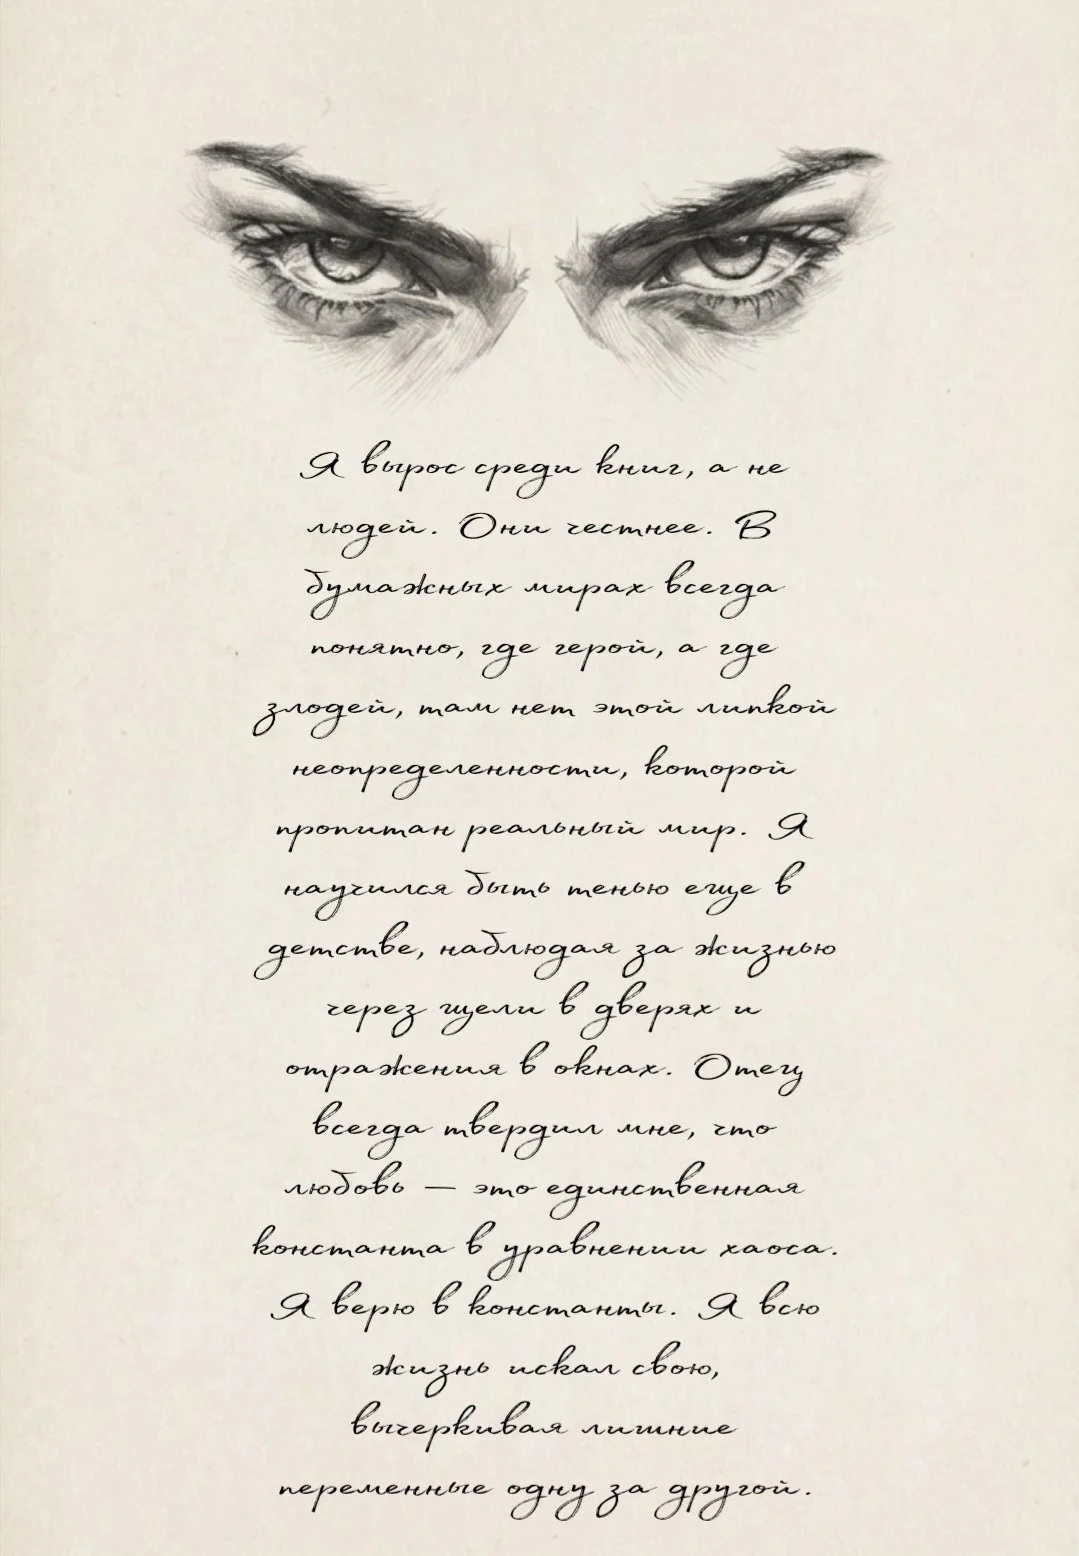 Я вырос среди книг, а не
людей. Они честнее. В
бумажных мирах всегда
понятно, где герой, а где
злодей, там нет этой липкой
неопределенности, которой
пропитан реальный мир. Я
научился быть тенью еще в
детстве, наблюдая за жизнью
через щели в дверях и
отражения в окнах. Отец
всегда твердил мне, что
любовь — это единственная
константа в уравнении хаоса.
Я верю в константы. Я всю
жизнь искал свою,
вычеркивая лишние
переменные одну за другой.